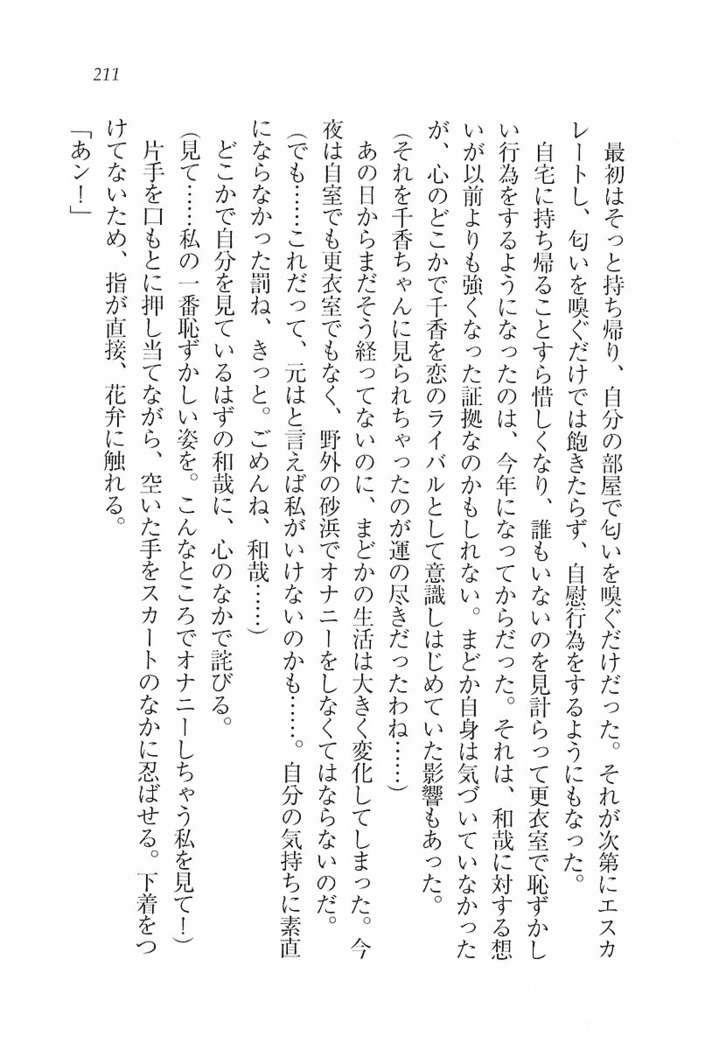 211
最初はそっと持ち帰り、自分の部屋で匂いを嗅ぐだけだった。それが次第にエスカ
レートし、匂いを嗅ぐだけでは飽きたらず、自慰行為をするようにもなった。
自宅に持ち帰ることすら惜しくなり、誰もいないのを見計らって更衣室で恥ずかし
い行為をするようになったのは、今年になってからだった。それは、和哉に対する想
いが以前よりも強くなった証拠なのかもしれない。まどか自身は気づいていなかった
が、心のどこかで千香を恋のライバルとして意識しはじめていた影響もあった。
(それを千香ちゃんに見られちゃったのが運の尽きだったわね……)
あの日からまだそう経ってないのに、まどかの生活は大きく変化してしまった。今
夜は自室でも更衣室でもなく、野外の砂浜でオナニーをしなくてはならないのだ。
(でも……これだって、元はと言えば私がいけないのかも……。自分の気持ちに素直
にならなかった罰ね、きっと。ごめんね、和哉……)
どこかで自分を見ているはずの和哉に、心のなかで詫びる。
(見て……私の一番恥ずかしい姿を。こんなところでオナニーしちゃう私を見て!)
片手を口もとに押し当てながら、空いた手をスカートのなかに忍ばせる。下着をつ
けてないため、指が直接、花弁に触れる。
「あン!」